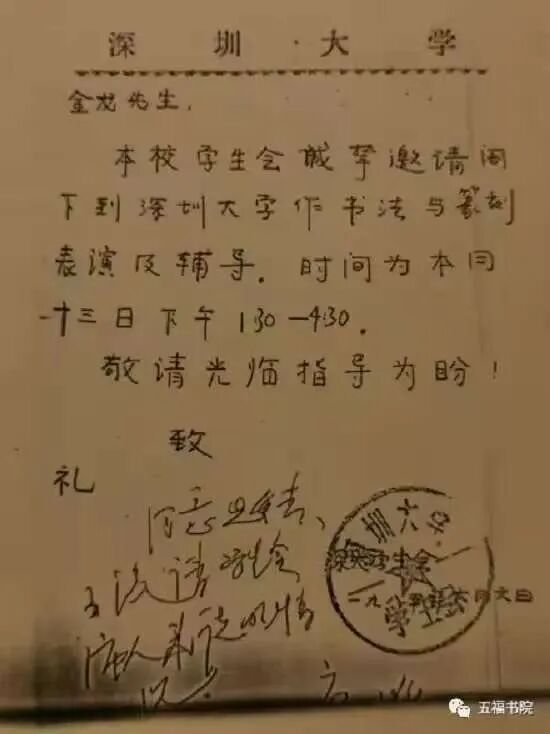 深圳大学
金龙先生，
本校学生会诚挚邀请阁
下到深圳大学作书法与篆刻
表演及辅导。时间为本月
十三日下午 1:30—4:30。
敬请光临指导为盼！
致
礼
深圳大学
深大学生会
学生会
六月六日
五福书院